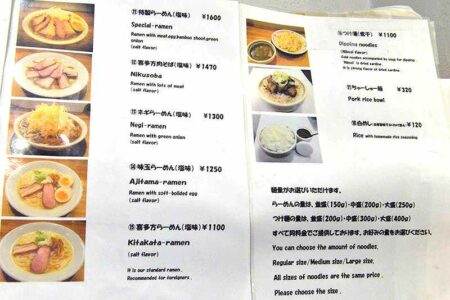 ⑪特製らーめん(塩味) ¥1600
Special-ramen
Ramen with meat,egg,bamboo shoot,green
onion
(salt flavor)
⑫喜多方肉そば(塩味) ¥1470
Nikusoba
Ramen with lots of meat
(salt flavor)
⑬ネギらーめん(塩味) ¥1300
Negi-ramen
Ramen with green onion
(salt flavor)
⑭味玉らーめん(塩味) ¥1250
Ajitama-ramen
Ramen with soft-boilded egg
(salt flavor)
⑮喜多方らーめん(塩味) ¥1100
Kitakata-ramen
(salt flavor)
It is our standard ramen.
Recommended for foreigners.
⑯つけ麺(煮干) ¥1100
Dipping noodles
(Niboshi flavor)
Cold noodles accompanied by soup for dipping.
It is strong flavor of dried sardine.
⑰ちゃーしゅー飯 ¥320
Pork rice bowl
⑱白めし ¥120
Rice with homemade rice seasoning
麺量がお選びいただけます。
らーめんの量は、並盛(150g)・中盛(200g)・大盛(250g)
つけ麺の量は、並盛(200g)・中盛(300g)・大盛(400g)
すべて同料金でご提供しております。お好みの量をお選びください。
You can choose the amount of noodles.
Regular size/Medium size/Large size.
All sizes of noodles are the same price.
Please choose the size.